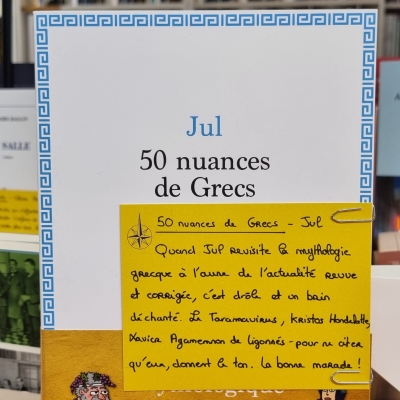 Jul
50 nuances
de Grecs
SALLE
50 nuances de Grecs - Jul
Quand Jul revisite la mythologie
grecque à l'aune de l'actualité revue
et corrigée, c'est drôle et un brin
déchanté. Le Taramavirus, Kristos Hondelatte,
Xavier Agamemnon de Ligonnès - pour ne citer
qu'eux, donnent le ton. La bonne marade !